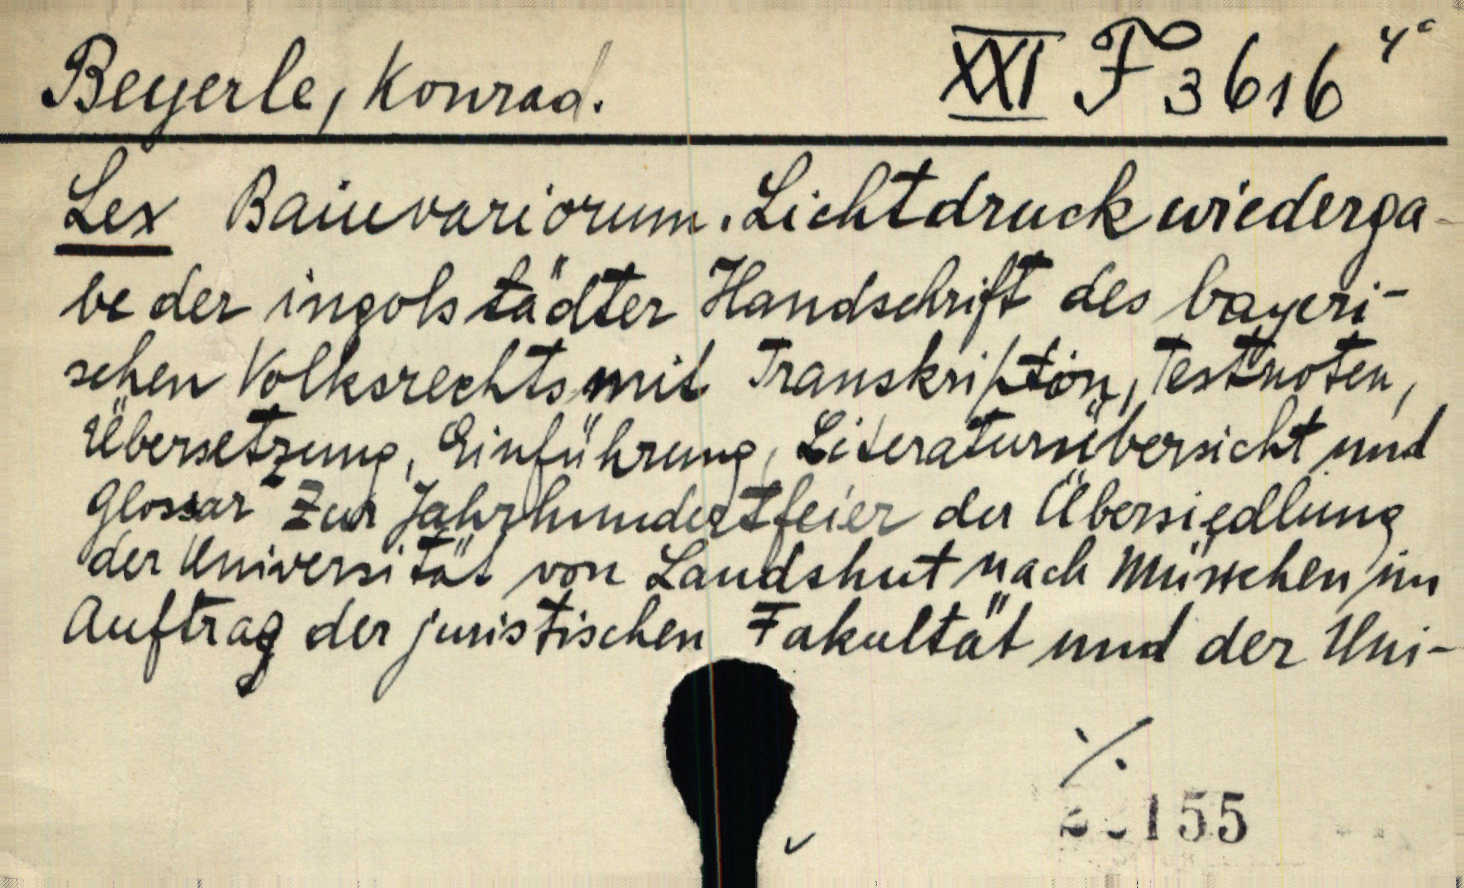 Beyerle, Konrad.
XXI F 3616 4°
Lex Baiuvariorum. Lichtdruckwiederga-
be der ingolstädter Handschrift des bayeri-
schen Volksrechts mit Transkription, Textnoten,
Übersetzung, Einführung, Literaturübersicht und
Glossar Zur Jahrhundertfeier der Übersiedlung
der Universität von Landshut nach München im
Auftrag der juristischen Fakultät und der Uni-
./.
155